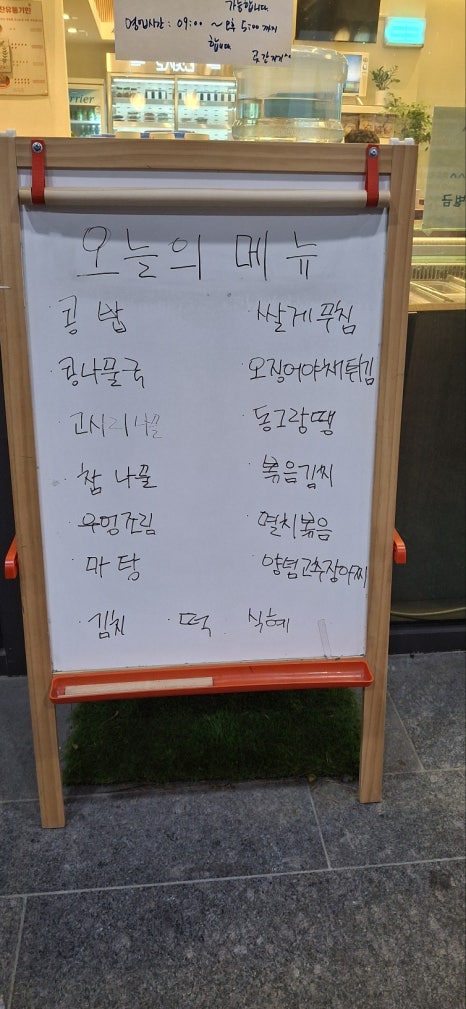 가능합니다.
영업시간 : 09:00 ~ 오후 5:00 까지
합니다
오늘의 메뉴
· 콩밥
· 쌀게무침
· 콩나물국
· 오징어야채튀김
· 고사리나물
· 동그랑땡
· 참나물
· 볶음김치
· 우엉조림
· 멸치볶음
· 마탕
· 양념고추장아찌
· 김치 · 떡 · 식혜